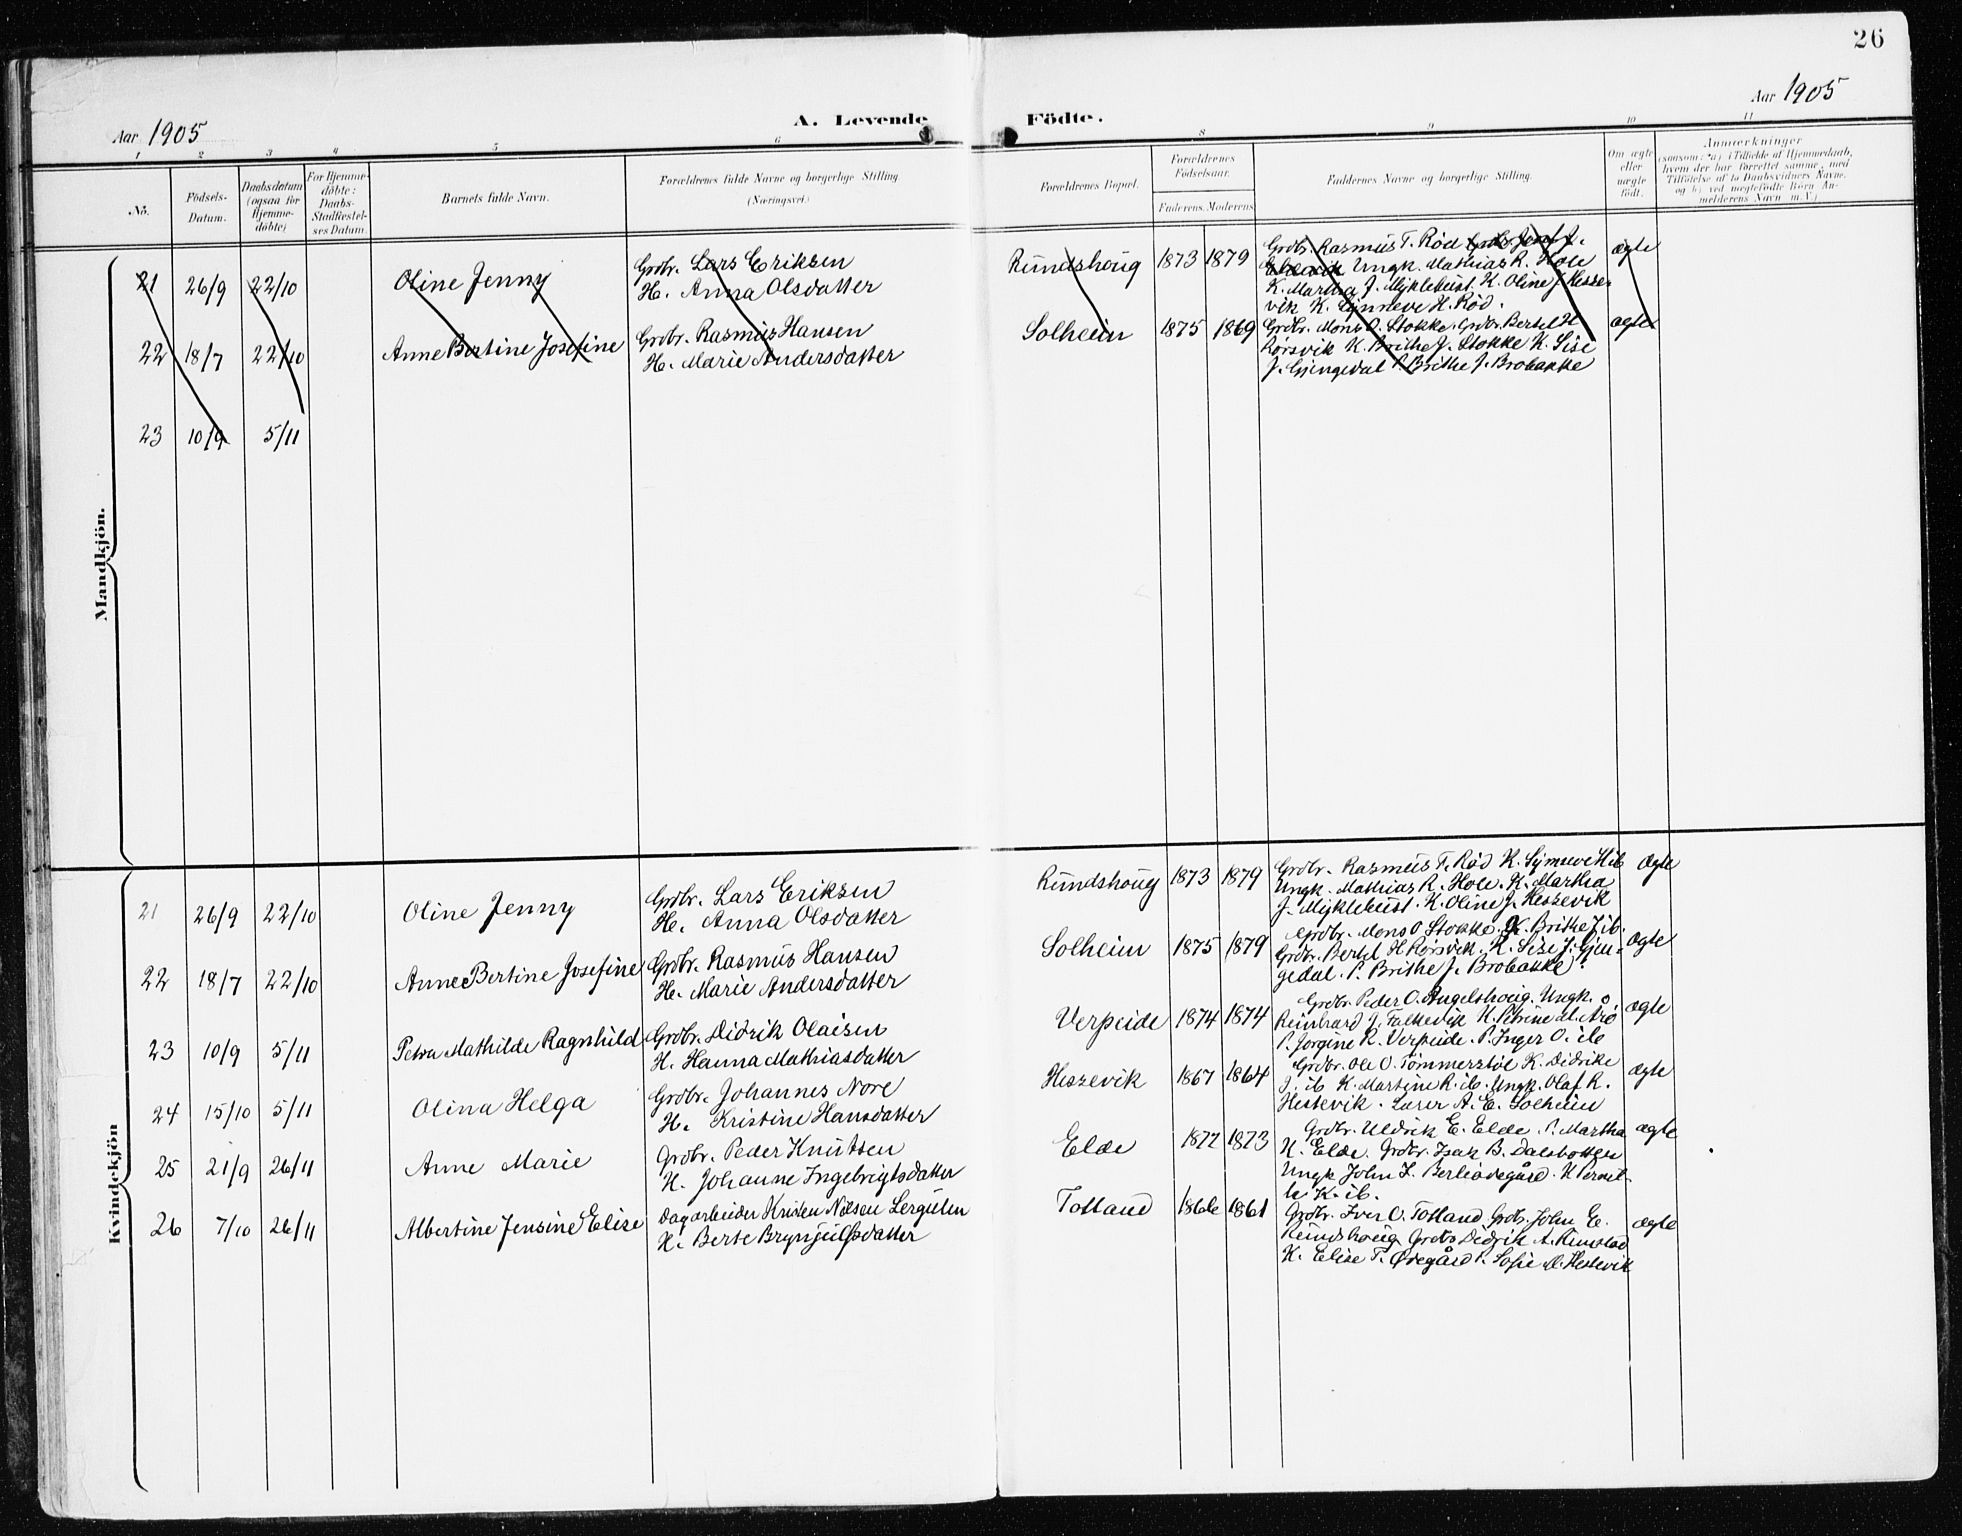 26
Aar 1905
A. Levende Födte.
Aar 1905
1 2 3 4 5 6 8 9 10 11
No.
Födsels-
Datum.
Daabsdatum
(ogsaa for
Hjemme-
döbte)
For Hjemme-
döbte:
Daabs-
Stadfæstel-
ses Datum.
Barnets fulde Navn.
Forældrenes fulde Navne og borgerlige Stilling
(Næringsvei.)
Forældrenes Bopæl.
Forældrenes
Födselsaar.
Faderens. Moderens
Faddernes Navne og borgerlige Stilling.
Om ægte
eller
uægte
födt.
Anmærkninger
(saasom: a) i Tilfælde af Hjemmedaab,
hvem der har forrettet samme, med
Tilföielse af to Daabsvidners Navne,
og b) ved uægtefödte Börn An-
melderens Navn m. V.)
Mandkjön.
21 26/9 22/10 Oline Jenny
Grdbr. Lars Eriksen
H. Anna Olsdatter
Rundshoug 1873 1879
Grdbr. Rasmus T. Rød
Ungk. Mathias R. Hole
K. Martha J. Myklebust. K. Oline J. Hesse-
vik K. Synneve H. Rød.
ægte
22 18/7 22/10 Anne Bertine Josefine
Grdbr. Rasmus Hansen
H. Marie Andersdatter
Solheim 1875 1869
Grdbr. Mons O. Stokke. Grdbr. Bertel H
Rørsvik K. Brithe J. Stokke K. Sise
J. Gjengedal P. Brithe J. Brobakke
ægte
23 10/9 5/11
Kvindekjön
21 26/9 22/10 Oline Jenny
Grdbr. Lars Eriksen
H. Anna Olsdatter
Rundshoug 1873 1879
Grdbr. Rasmus T. Rød K. Synneve H ib
Ungk. Mathias R. Hole. K. Martha
J. Myklebust. K. Oline J. Hessevik
Ægte
22 18/7 22/10 Anne Bertine Josefine
Grdbr. Rasmus Hansen
H. Marie Andersdatter
Solheim 1875 1879
Grdbr. Mons O Stokke. K. Brithe J ib.
Grdbr. Bertel H Rørsvik. K. Sise J. Gjen-
gedal. P. Brithe J. Brobakke.
Ægte
23 10/9 5/11 Petra Mathilde Ragnhild
Grdbr. Didrik Olaisen
H. Hanna Mathiasdatter
Verpeide 1874 1874
Grdbr. Peder O. Angelshoug. Ungk.
Reinhard J. Falkevik K. Petrine M. Arø
P. Jorgine R. Verpeide. P. Inger O. ib
ægte
24 15/10 5/11 Olina Helga
Grdbr. Johannes Nore
H. Kristine Hansdatter
Hessevik 1867 1864
Grdbr. Ole O. Tømmerstøl K. Didrike
J. ib K. Martine R. ib. Ungk. Olaf R.
Hestevik. Lærer A. E. Solheim
ægte
25 21/9 26/11 Anne Marie
Grdbr. Peder Knutsen
H. Johanne Ingebrigtsdatter
Elde 1872 1873
Grdbr. Uldrik E. Elde P. Martha
K. Elde. Grdbr. Isak B. Dalsbotten
Ungk John L. Berliødegård. K Pernil-
le K. ib.
ægte
26 7/10 26/11 Albertine Jensine Elise
Dagarbeider Kristen Nilsen Lergulen
H. Berte Brynjulfsdatter
Totland 1866 1861
Grdbr. Iver O. Totland Grdbr. John E.
Rundshoug Grdbr Didrik A. Rimstad
K. Elise T. Ødegård P. Sofie M. Hestevik
ægte